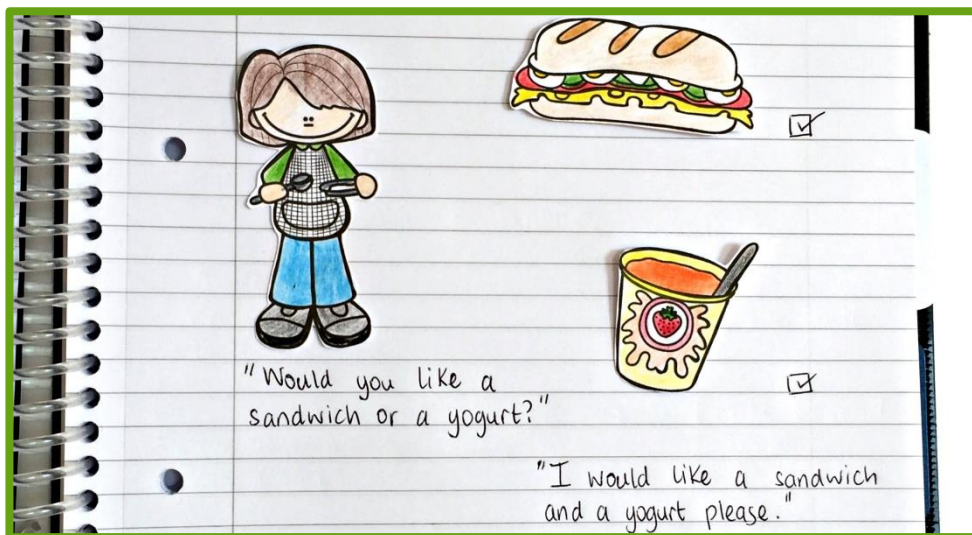 "Would you like a
sandwich or a yogurt?"
"I would like a sandwich
and a yogurt please."